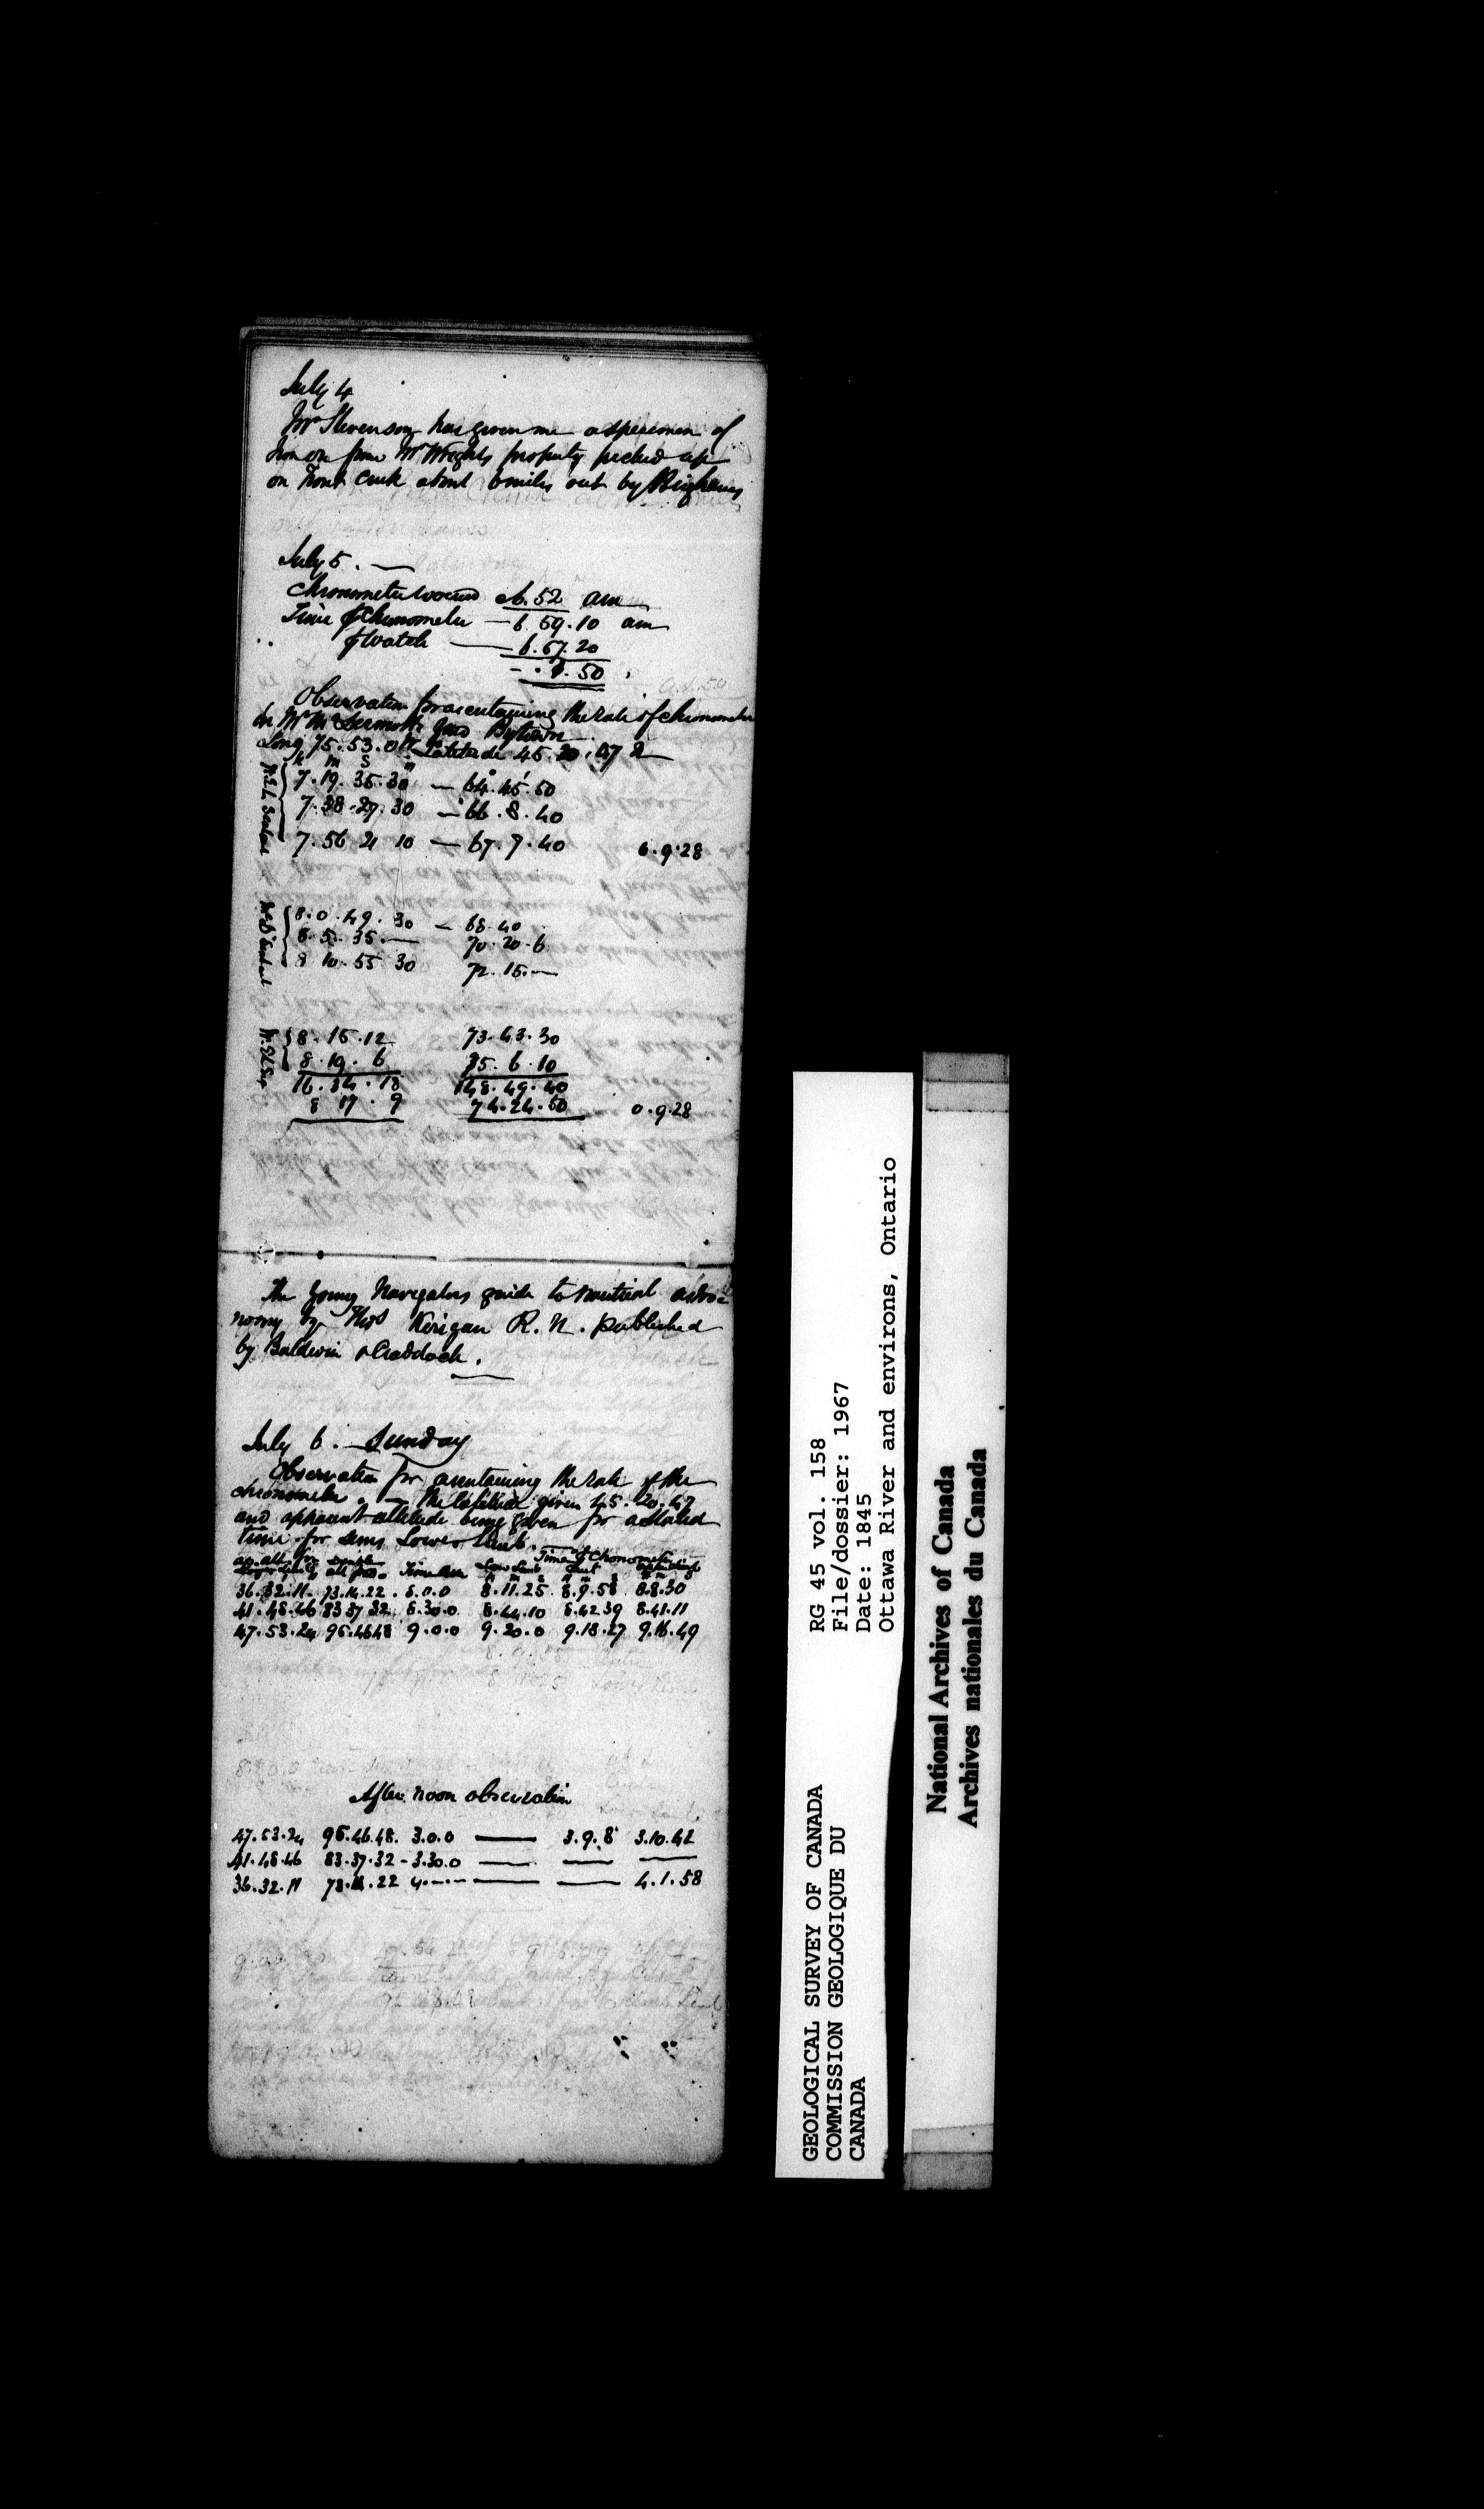 July 4
Mr Stevenson has given me a specimen of
Iron ore from Mr Wrights property picked up
on Trout Creek about 6 miles out by Brighams
July 5. —
Chronometer wound 6.52 am
Time of Chronometer — 6 59.10 am
of Watch — 6.57.20
- . 1. 50
Observation for ascertaining the rate of chronometer
in Mr McDermott's yard Bytown
Long 75.53.0 W Latitude 45.20.47
h m s
7.19.35.30 — 64.45.50
7.38.29.30 — 66.8.40
7.56 21 10 — 67.9.40 6.9.28
8.0.49.30 — 68.40
8.5.35.— 70.20.6
8 10.55 30 72.15.—
8.15.12 73.43.30
8.19.6 75.6.10
16.34.18 148.49.40
8 17.9 74.24.50 0.9.28
The Young Navigators guide to nautical astro=
nomy by Thos Kerigan R.N. published
by Baldwin & Craddock.
July 6. — Sunday
Observation for ascertaining the rate of the
chronometer. — The latitude given 45.20.47
and apparent altitude being given for a stated
time for suns Lower Limb.
Time of Chronometer
36.32.11. 73.14.22. 8.0.0 8.11.25 8.9.58 8.8.30
41.48.46 83 37 32. 8.30.0 8.44.10 8.42 39 8.41.11
47.53.24 95.46 48 9.0.0 9.20.0 9.18.27 9.16.49
After noon observation
47.53.24 95.46.48. 3.0.0 — 3.9.8 3.10.42
41.48.46 83.37.32 - 3.30.0 — — —
36.32.11 73.14.22 4.-.-- — — 4.1.58
GEOLOGICAL SURVEY OF CANADA
COMMISSION GEOLOGIQUE DU
CANADA
RG 45 vol. 158
File/dossier: 1967
Date: 1845
Ottawa River and environs, Ontario
National Archives of Canada
Archives nationales du Canada